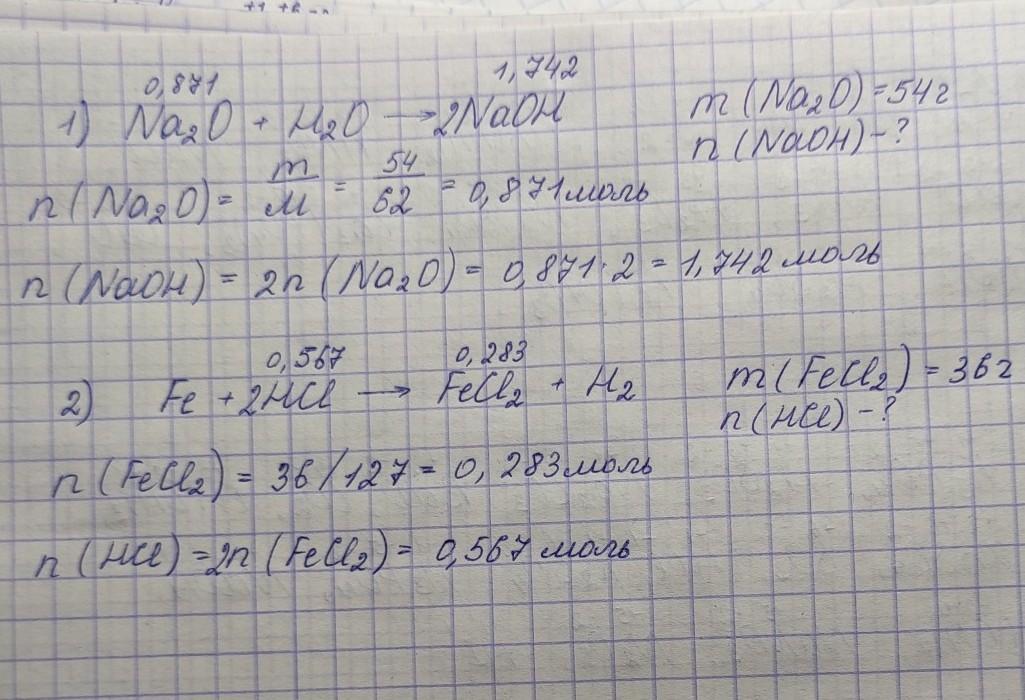 0,871 1,742
1) Na₂O + H₂O → 2NaOH m(Na₂O) = 54г
n(NaOH) - ?
n(Na₂O) = m/M = 54/62 = 0,871 моль
n(NaOH) = 2n(Na₂O) = 0,871·2 = 1,742 моль
0,567 0,283
2) Fe + 2HCl → FeCl₂ + H₂ m(FeCl₂) = 36г
n(HCl) - ?
n(FeCl₂) = 36/127 = 0,283 моль
n(HCl) = 2n(FeCl₂) = 0,567 моль